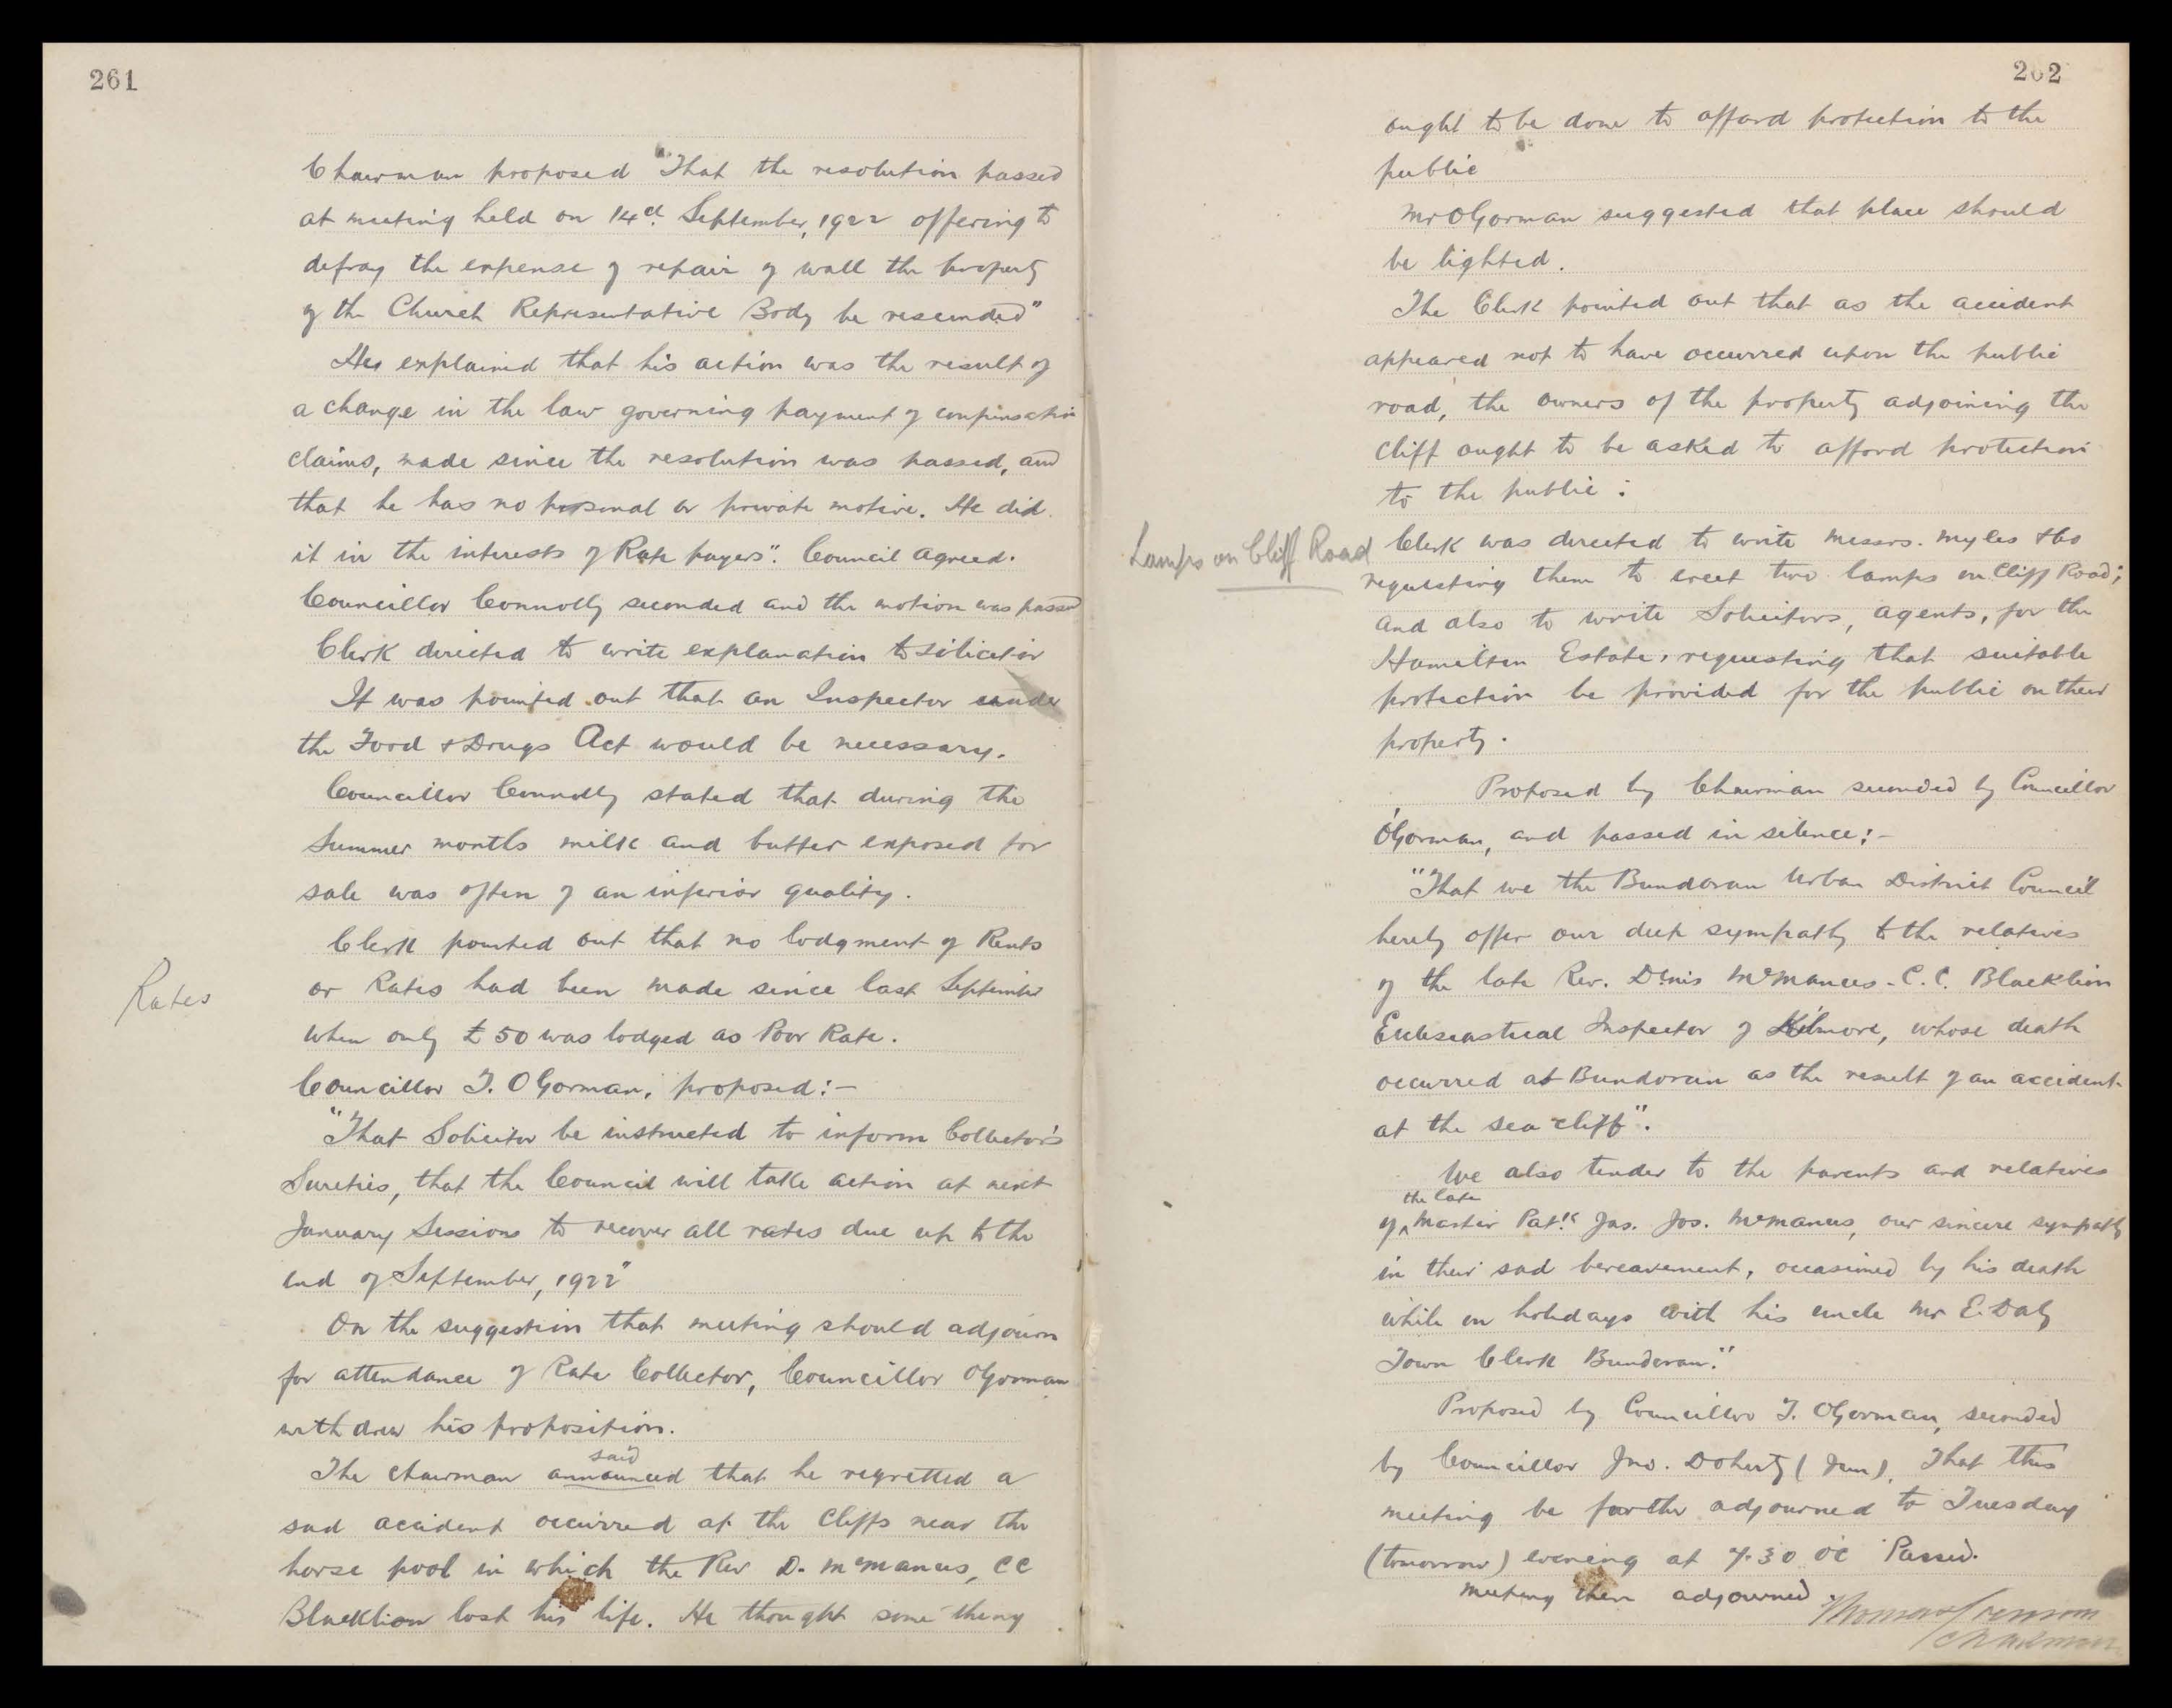 261
Chairman proposed "That the resolution passed
at meeting held on 14th. September, 1922 offering to
defray the expense of repair of wall the property
of the Church Representative Body be rescinded"
He explained that his action was the result of
a change in the law governing payment of compensation
claims, made since the resolution was passed, and
that he has no personal or private motive. He did
it in the interests of Rate payers". Council agreed.
Councillor Connolly seconded and the motion was passed
Clerk directed to write explanation to solicitor
It was pointed out that an Inspector under
the Food & Drugs Act would be necessary.
Councillor Connolly stated that during the
Summer months milk and butter exposed for
sale was often of an inferior quality.
Clerk pointed out that no lodgment of Rents
Rates
or Rates had been made since last September
when only £50 was lodged as Poor Rate.
Councillor T. O'Gorman, proposed:-
"That Solicitor be instructed to inform Collector's
Sureties, that the Council will take action at next
January Sessions to recover all rates due up to the
end of September, 1922"
On the suggestion that meeting should adjourn
for attendance of Rate Collector, Councillor O'Gorman
withdrew his proposition.
said
The chairman announced that he regretted a
sad accident occurred at the Cliffs near the
horse pool in which the Rev D. McManus, CC
Blacklion lost his life. He thought some thing
262
ought to be done to afford protection to the
public
Mr O'Gorman suggested that place should
be lighted.
The Clerk pointed out that as the accident
appeared not to have occurred upon the public
road, the owners of the property adjoining the
cliff ought to be asked to afford protection
to the public:
Lamps on Cliff Road
Clerk was directed to write Messrs. Myles & Co
requesting them to erect two lamps on Cliff Road;
and also to write Solicitors, agents, for the
Hamilton Estate, requesting that suitable
protection be provided for the public on their
property.
Proposed by Chairman seconded by Councillor
O'Gorman, and passed in silence:-
"That we the Bundoran Urban District Council
hereby offer our deep sympathy to the relatives
of the late Rev. Denis McManus. C.C. Blacklion
Eccleseastical Inspector of Kilmore, whose death
occurred at Bundoran as the result of an accident
at the sea cliff".
We also tender to the parents and relatives
the late
of Master Patk. Jas. Jos. McManus, our sincere sympathy
in their sad bereavement, occasioned by his death
while on holidays with his uncle Mr E. Daly
Town Clerk Bundoran."
Proposed by Councillor T. O'Gorman, seconded
by Councillor Jno. Doherty (Jun), That this
meeting be further adjourned to Tuesday
(tomorrow) evening at 7.30 OC Passed.
Meeting then adjourned.
Thomas
Chairman